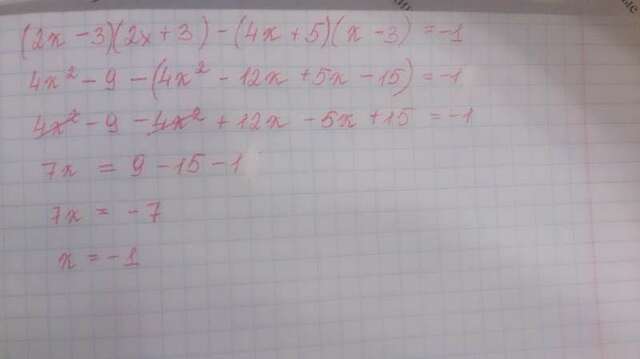 (2x - 3)(2x + 3) - (4x + 5)(x - 3) = -1
4x² - 9 - (4x² - 12x + 5x - 15) = -1
4x² - 9 - 4x² + 12x - 5x + 15 = -1
7x = 9 - 15 - 1
7x = -7
x = -1